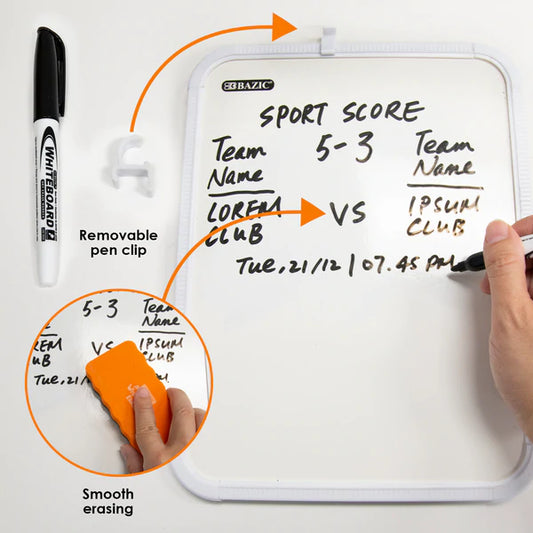 BAZIC
SPORT SCORE
Team 5-3 Team
Name Name
LOREM VS IPSUM
CLUB CLUB
Tue, 21/12 | 07.45 PM
WHITEBOARD
Removable
pen clip
5-3 Team
Name
REM VS IPSUM
UB CLUB
Tue, 21/
Smooth
erasing